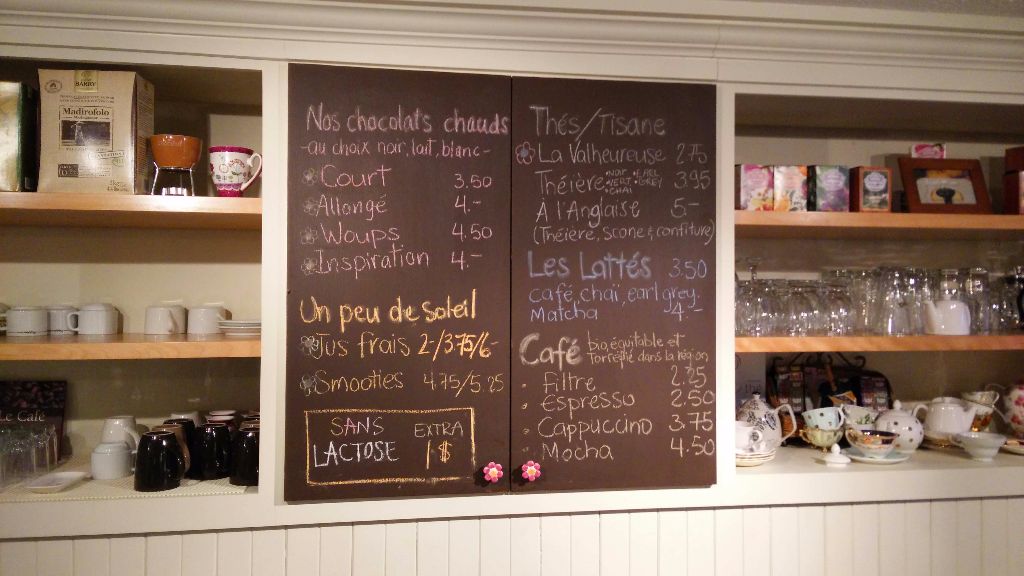 BARRY
Madirofolo
Le Café
Nos chocolats chauds
-au choix noir, lait, blanc-
Court 3.50
Allongé 4.-
Woups 4.50
Inspiration 4.-
Un peu de soleil
Jus frais 2/3.75/6-
Smooties 4.75/5.25
SANS LACTOSE
EXTRA 1$
Thés/Tisane
La Valheureuse 2.75
Théière 3.95
•NOIR •EARL
•VERT GREY
•CHAI
À l'Anglaise 5-
(Théière, scone & confiture)
Les Lattés 3.50
café, chai, earl grey.
Matcha 4.-
Café bio équitable et
Torréfié dans la région
Filtre 2.25
Espresso 2.50
Cappuccino 3.75
Mocha 4.50